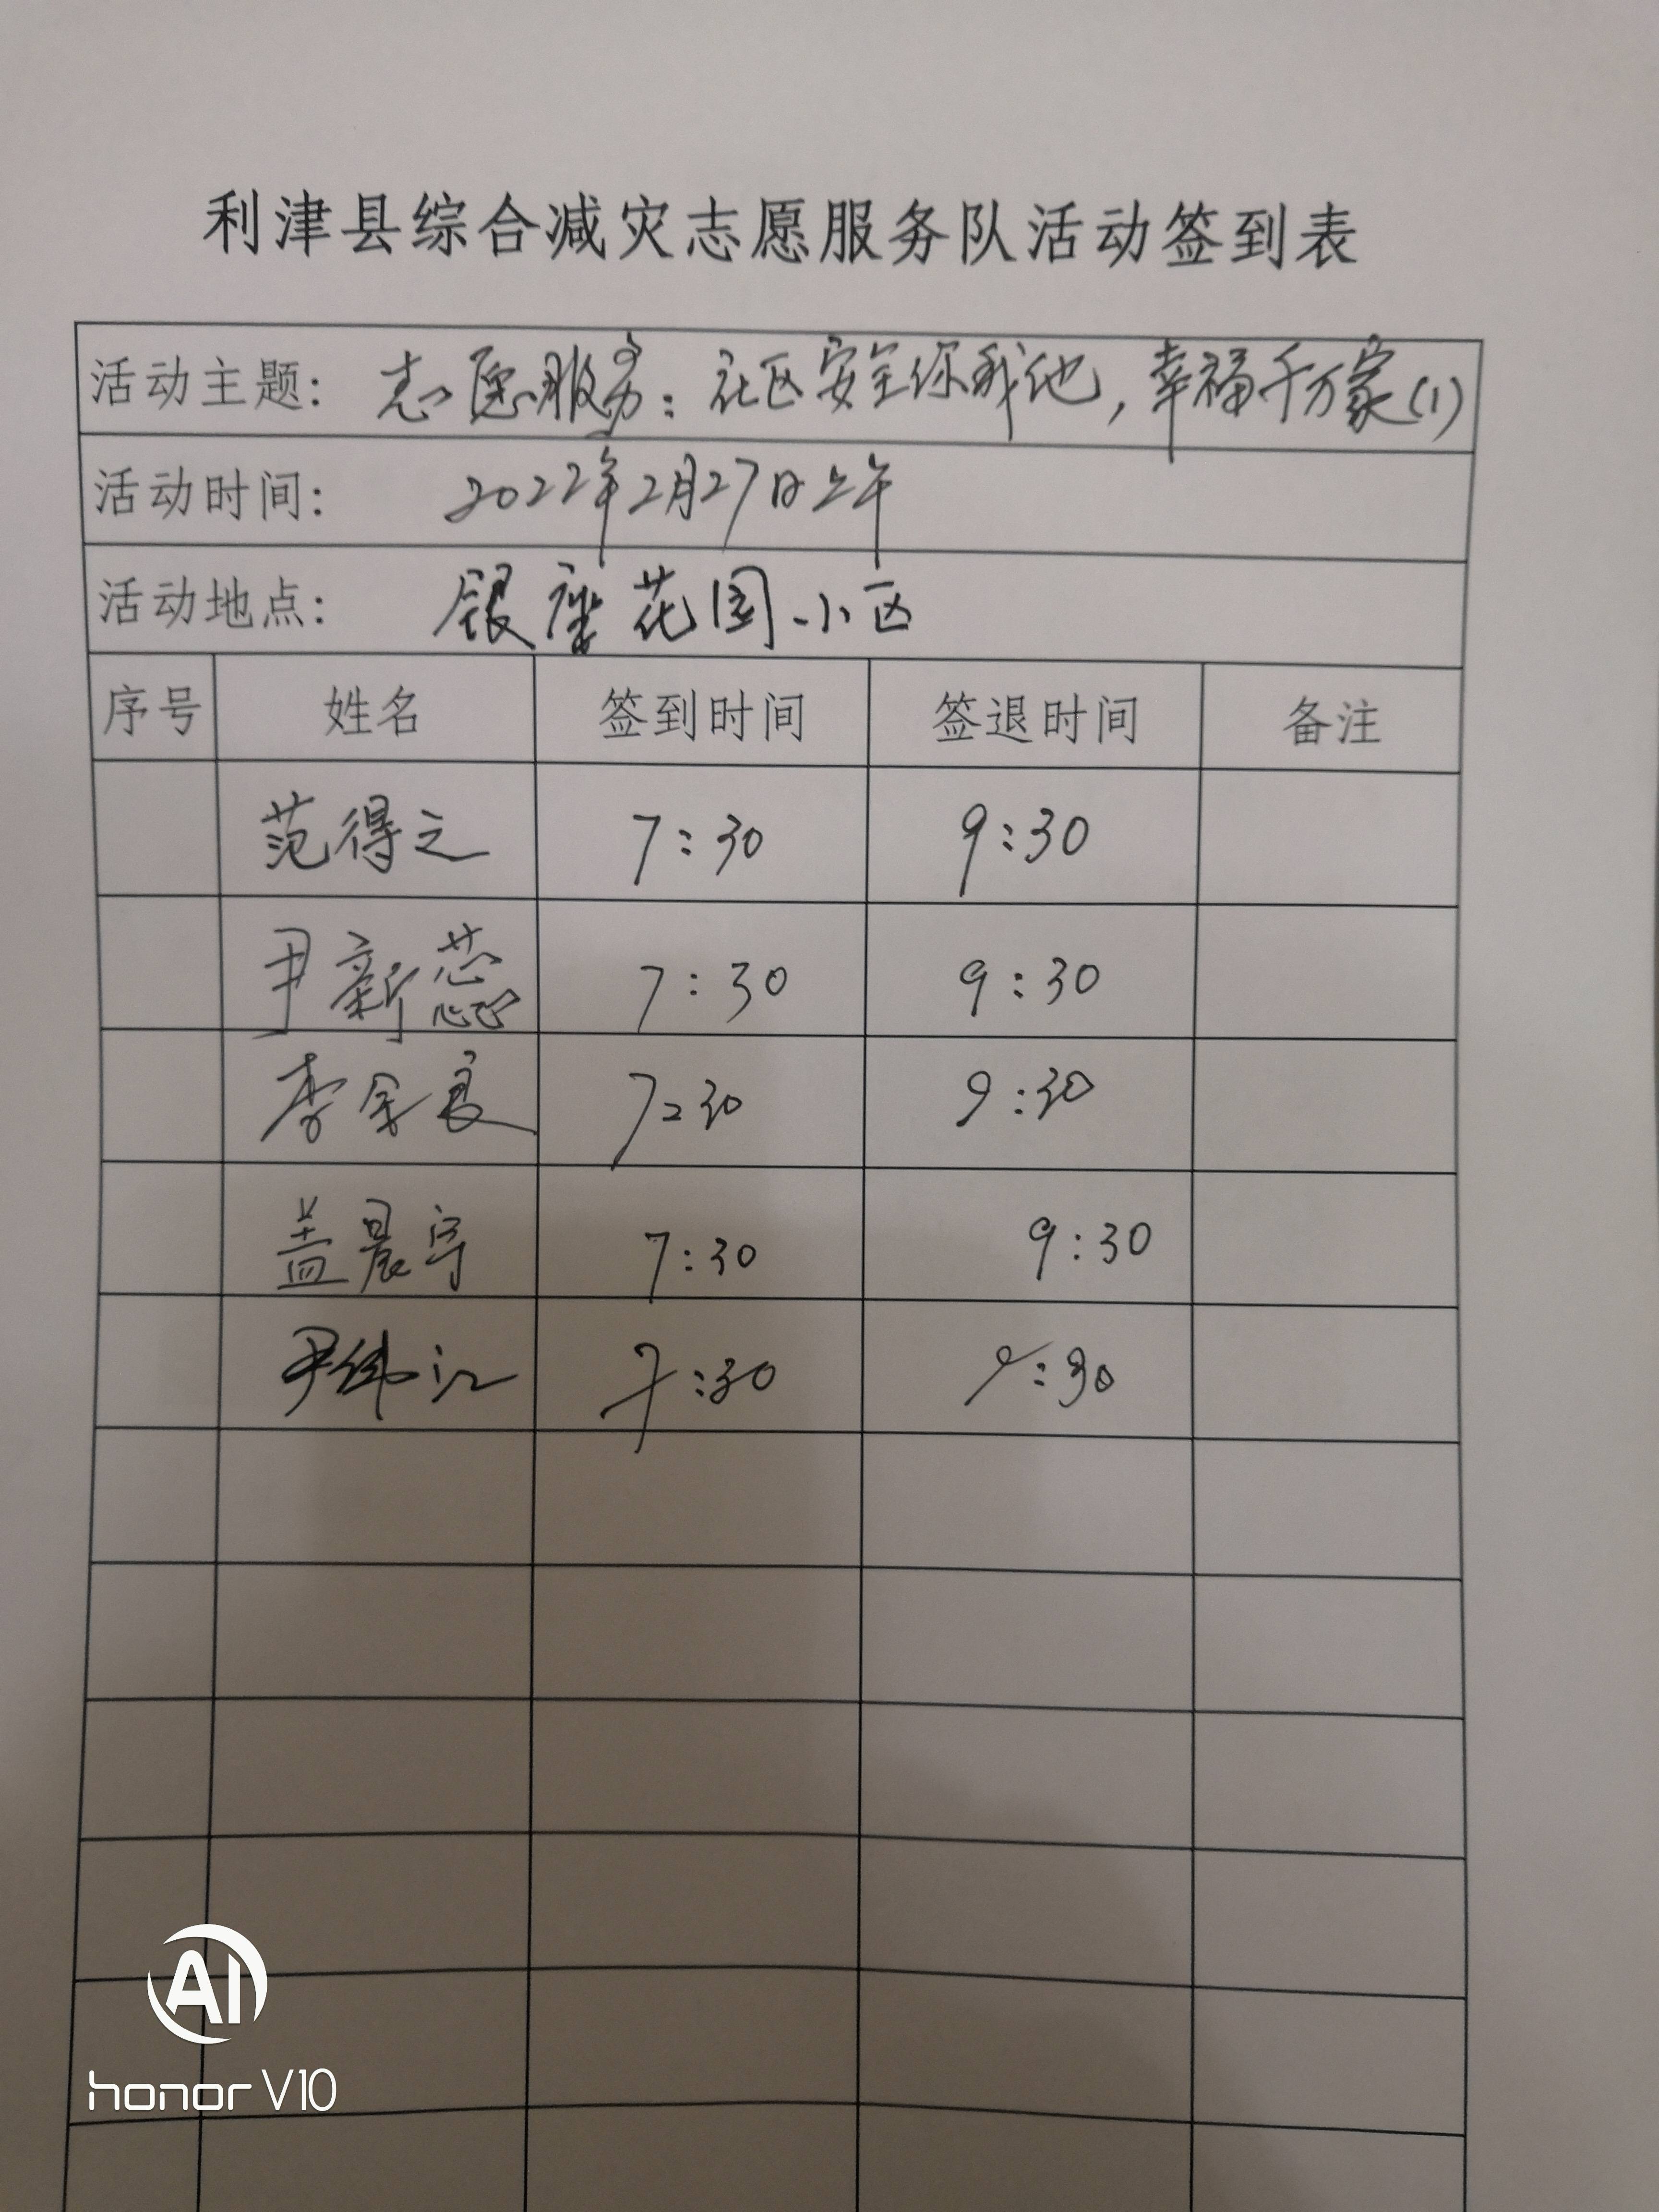 利津县综合减灾志愿服务队活动签到表
活动主题: 志愿服务:社区安全你我他,幸福千万家(1)
活动时间: 2022年2月27日上午
活动地点: 银座花园小区
序号 姓名 签到时间 签退时间 备注
范得之 7:30 9:30
尹新蕊 7:30 9:30
李金良 7:30 9:30
盖晨宇 7:30 9:30
尹纬江 7:30 9:30
AI
honor V10